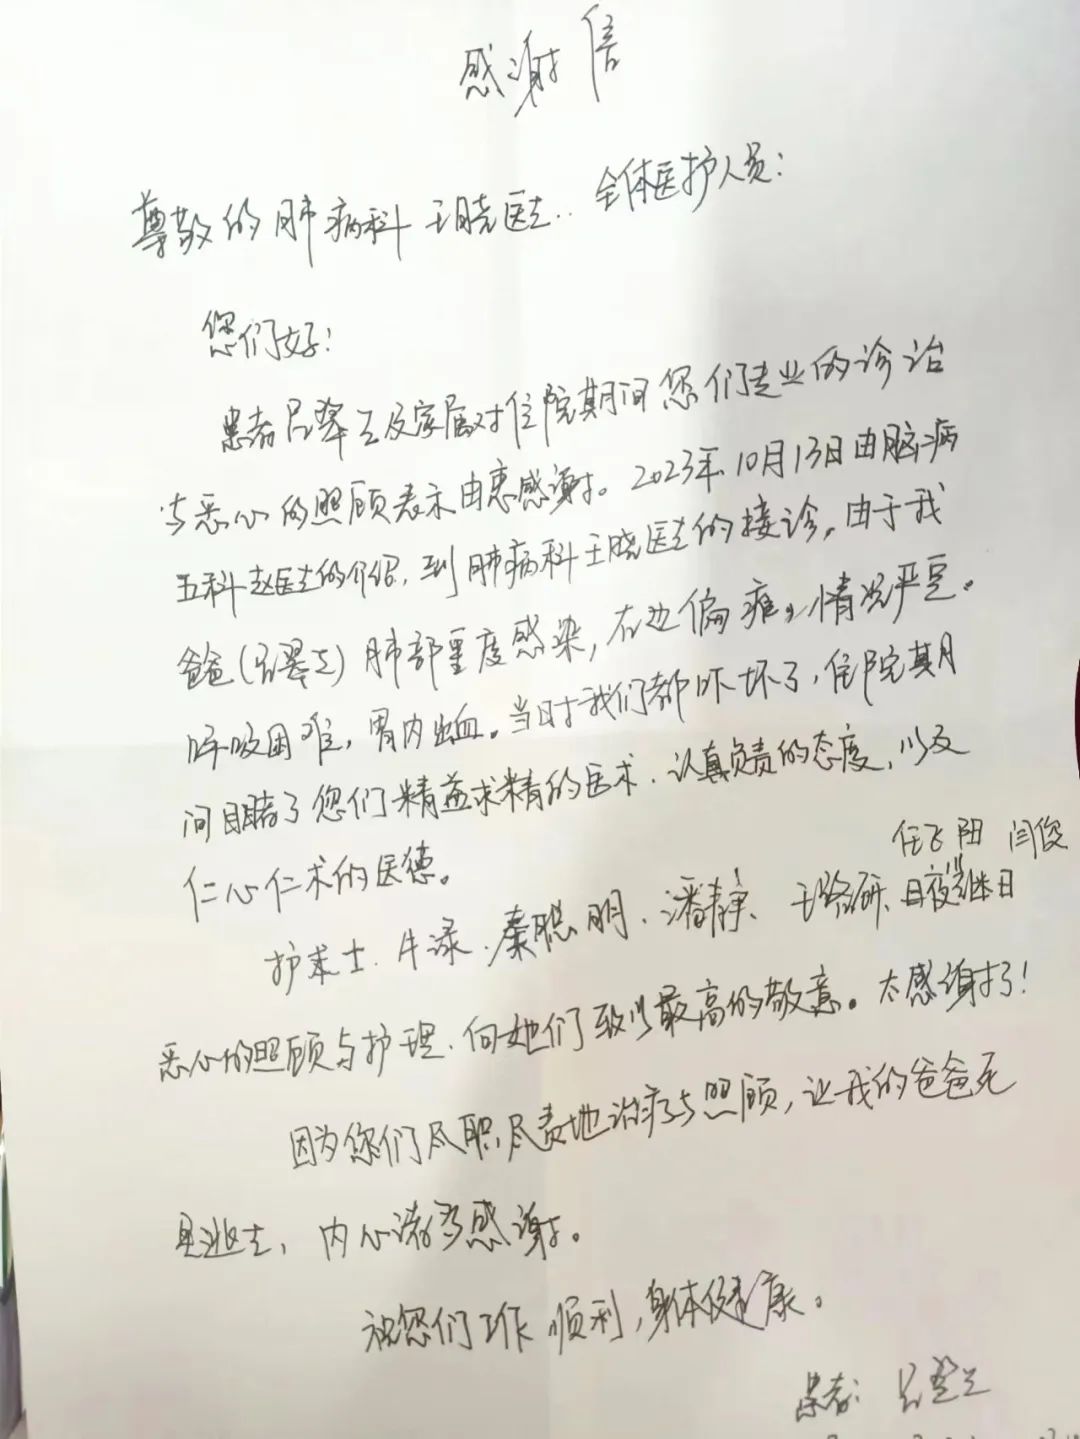 感谢信
尊敬的肺病科王晓医生.. 全体医护人员：
您们好！
患者 及家属对住院期间您们专业的诊治
与悉心的照顾表示由衷感谢。2023年10月13日由脑病
五科赵医生的介绍，到肺病科王晓医生的接诊，由于我
爸爸( )肺部重度感染，右边偏瘫，情况严重。
呼吸困难，胃内出血。当时我们都吓坏了，住院期
间目睹了您们精益求精的医术、认真负责的态度，以及
仁心仁术的医德。
任飞阳 闫俊
护士、牛渌、秦聪明、潘静、王 研、日夜继日
悉心的照顾与护理、向她们致以最高的敬意。太感谢了！
因为您们尽职，尽责地治疗与照顾，让我的爸爸死
里逃生，内心诸多感谢。
祝您们工作顺利，身体健康。
患者：